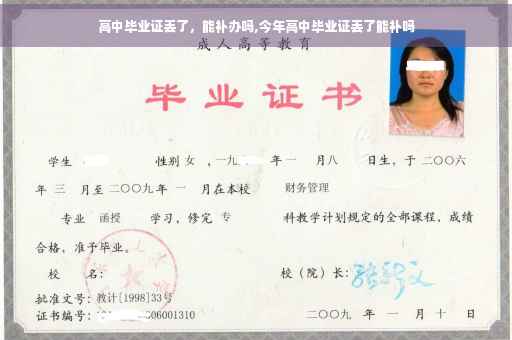 高中毕业证丢了，能补办吗,今年高中毕业证丢了能补吗
成人高等教育
毕业证书
学生 性别 女 ，一九 年 一 月八 日生，于 二〇〇六
年 三 月至 二〇〇九 年 一 月在本校 财务管理
专业 函授 学习，修完 专 科教学计划规定的全部课程，成绩
合格，准予毕业。
校 名： 校（院）长：
批准文号：教计[1998]33号
证书编号： 06001310 二〇〇九 年 一 月 十 日